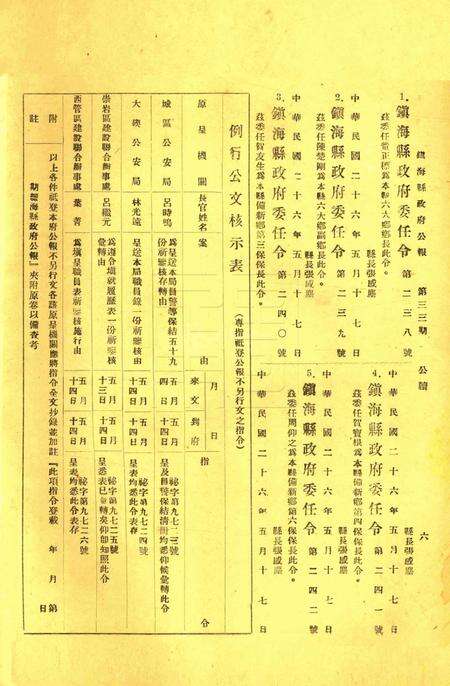 鎮海縣政府公報　第三三期　公牘　六
1. 鎮海縣政府委任令　第二三八號
茲委任常正標為本縣六大鄉鄉長此令。
縣長張感塵
中華民國二十六年五月十七日
2. 鎮海縣政府委任令　第二三九號
茲委任陳楚剛為本縣六大鄉副鄉長此令。
縣長張感塵
中華民國二十六年五月十七日
3. 鎮海縣政府委任令　第二四〇號
茲委任賀友生為本縣備新鄉第三保保長此令。
縣長張感塵
中華民國二十六年五月十七日
4. 鎮海縣政府委任令　第二四一號
茲委任賀寶根為本縣備新鄉第四保保長此令。
縣長張感塵
中華民國二十六年五月十七日
5. 鎮海縣政府委任令　第二四二號
茲委任周仰之為本縣備新鄉第六保保長此令。
縣長張感塵
中華民國二十六年五月十七日
例行公文核示表
（專指祗登公報不另行文之指令）
原呈機關　長官姓名　案由　來文月日　到府月日　指令
城區公安局　呂時鳴　為呈送本局員警等保結五十九份祈鑒核存轉由　五月四日　五月十四日　祕字第九七二三號
呈及員警保結清冊均悉仰候彙轉此令
大碶公安局　林光遠　呈送本局職員錄一份祈鑒核由　五月十四日　五月十四日　祕字第九七二四號
呈表均悉此令表存
崇岩區建設聯合辦事處　呂繼元　為遵令填就履歷表一份祈鑒核彙轉由　五月十三日　五月十四日　祕字第九七二五號
呈悉表已彙轉矣仰即知照此令
西管區建設聯合辦事處　葉善　為填呈職員表祈鑒核施行由　五月十四日　五月十四日　祕字第九七二六號
呈表均悉此令表存
附註　以上各件祗登本府公報不另行文各路原呈機關應將指令全文抄錄並加註『此項指令登載　年　月　日第　期鎮海縣政府公報』夾附原卷以備查考